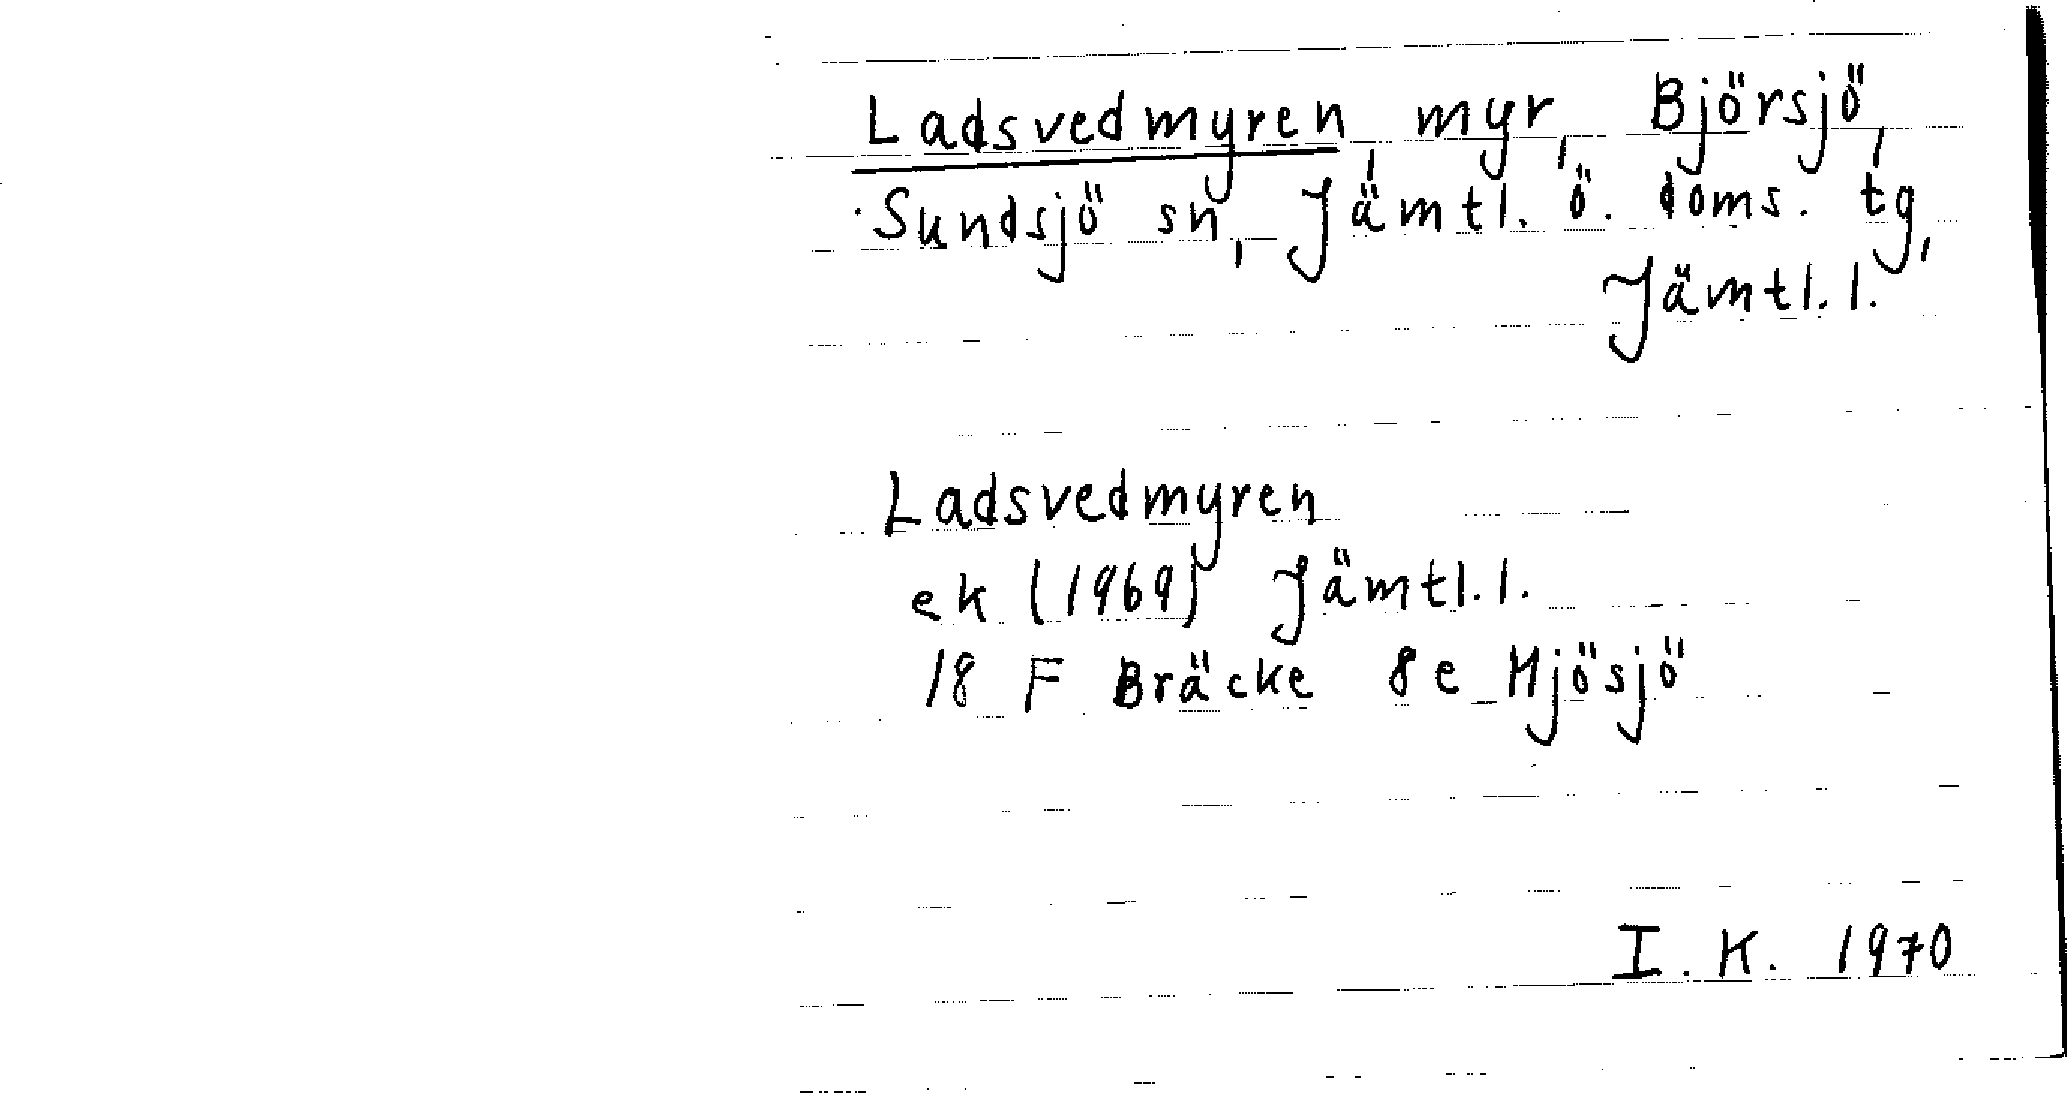 Ladsvedmyren, myr, Björsjö,
Sundsjö sn, Jämtl. ö. doms. tg,
Jämtl. l.
Ladsvedmyren
ek (1969) Jämtl. l.
18 F Bräcke 8e Mjösjö
I. K. 1970